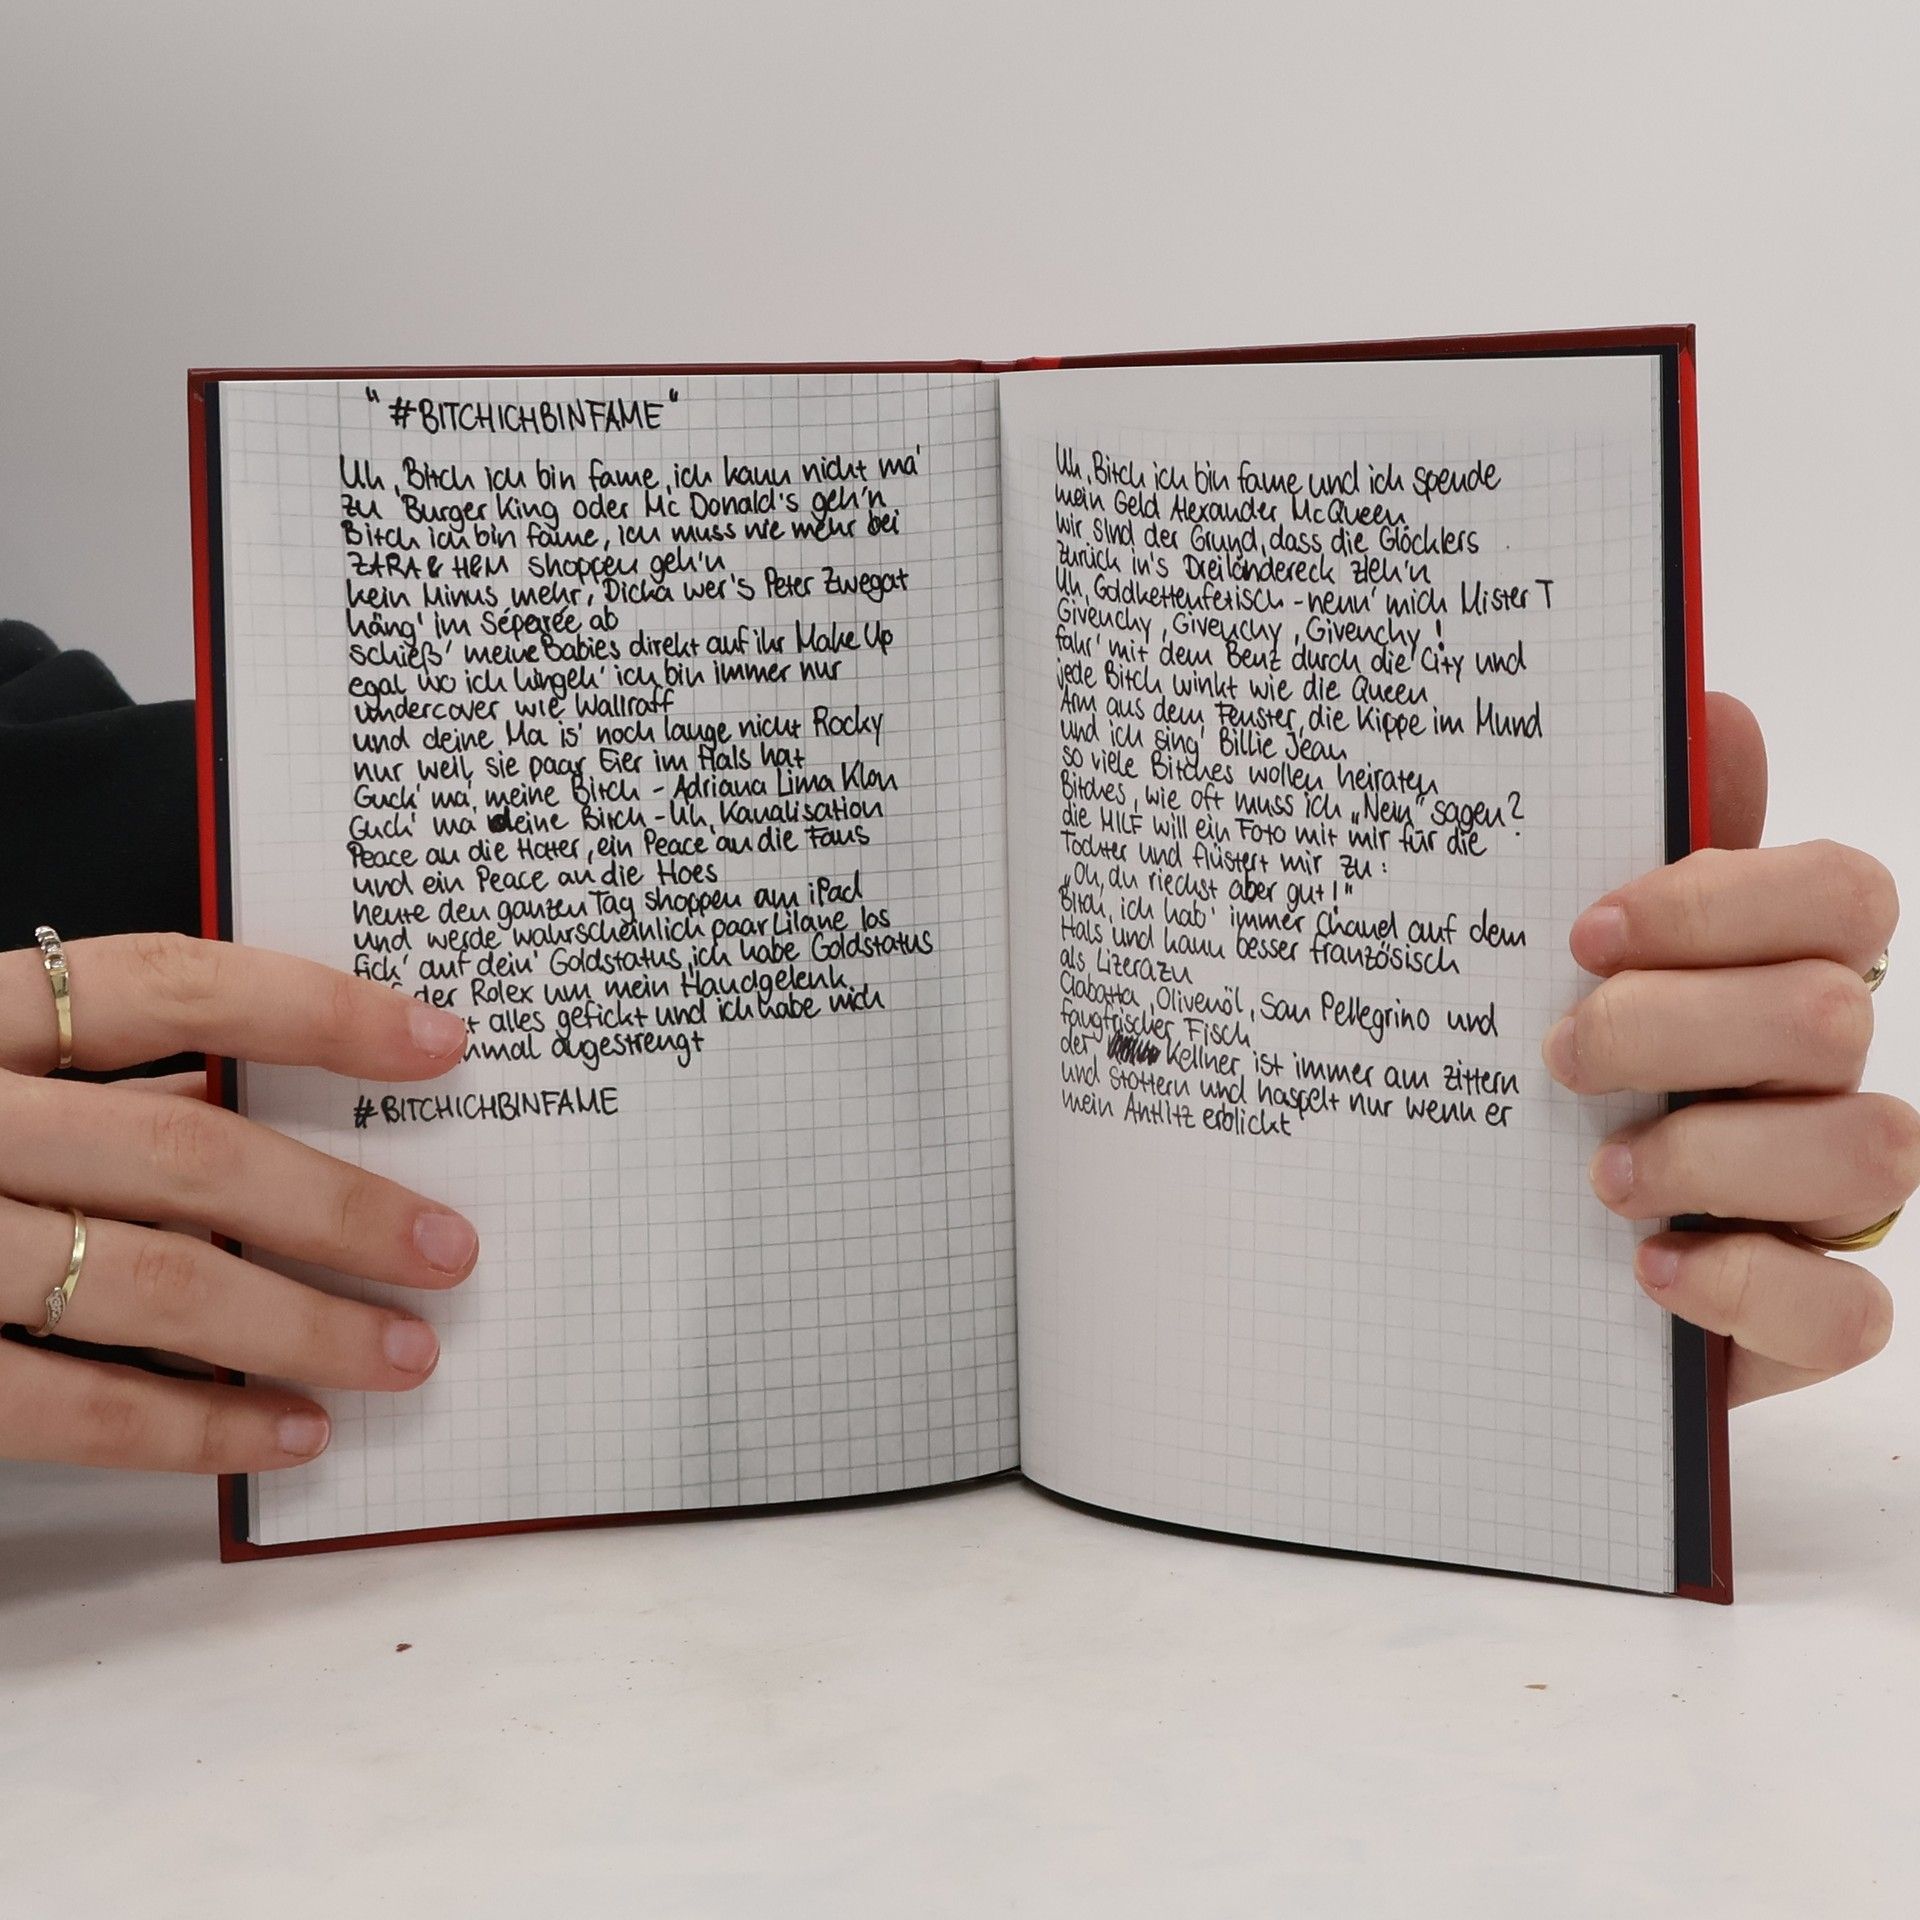 "#BITCHICHBINFAME"
Uh, Bitch ich bin fame, ich kann nicht ma'
zu Burger King oder Mc Donald's geh'n
Bitch ich bin fame, ich muss nie mehr bei
ZARA & H&M shoppen geh'n
kein Minus mehr, Dicka wer's Peter Zwegat
häng' im Séparée ab
schieß' meine Babies direkt auf ihr Make Up
egal wo ich hingeh' ich bin immer nur
undercover wie Wallraff
und deine Ma is' noch lange nicht Rocky
nur weil sie paar Eier im Hals hat
Guck' ma' meine Bitch - Adriana Lima Klon
Guck' ma' deine Bitch - Uh, Kanalisation
Peace an die Hater, ein Peace an die Fans
und ein Peace an die Hoes
heute den ganzen Tag shoppen am iPad
und werde wahrscheinlich paar Lilane los
fick' auf dein' Goldstatus, ich habe Goldstatus
der Rolex um mein Handgelenk
alles gefickt und ich habe mich
angestrengt
#BITCHICHBINFAME
Uh, Bitch ich bin fame und ich spende
mein Geld Alexander McQueen
wir sind der Grund, dass die Glöcklers
zurück in's Dreiländereck zieh'n
Uh, Goldkettenfetisch - nenn' mich Mister T
Givenchy, Givenchy, Givenchy!
fahr' mit dem Benz durch die City und
jede Bitch winkt wie die Queen
Arm aus dem Fenster, die Kippe im Mund
und ich sing' Billie Jean
so viele Bitches wollen heiraten
Bitches, wie oft muss ich „Nein" sagen?
die MILF will ein Foto mit mir für die
Tochter und flüstert mir zu:
„Oh, du riechst aber gut!"
Bitch, ich hab' immer Chanel auf dem
Hals und kann besser französisch
als Lizarazu
Ciabatta, Olivenöl, San Pellegrino und
fangfrischer Fisch
der Kellner ist immer am zittern
und stottern und haspelt nur wenn er
mein Antlitz erblickt